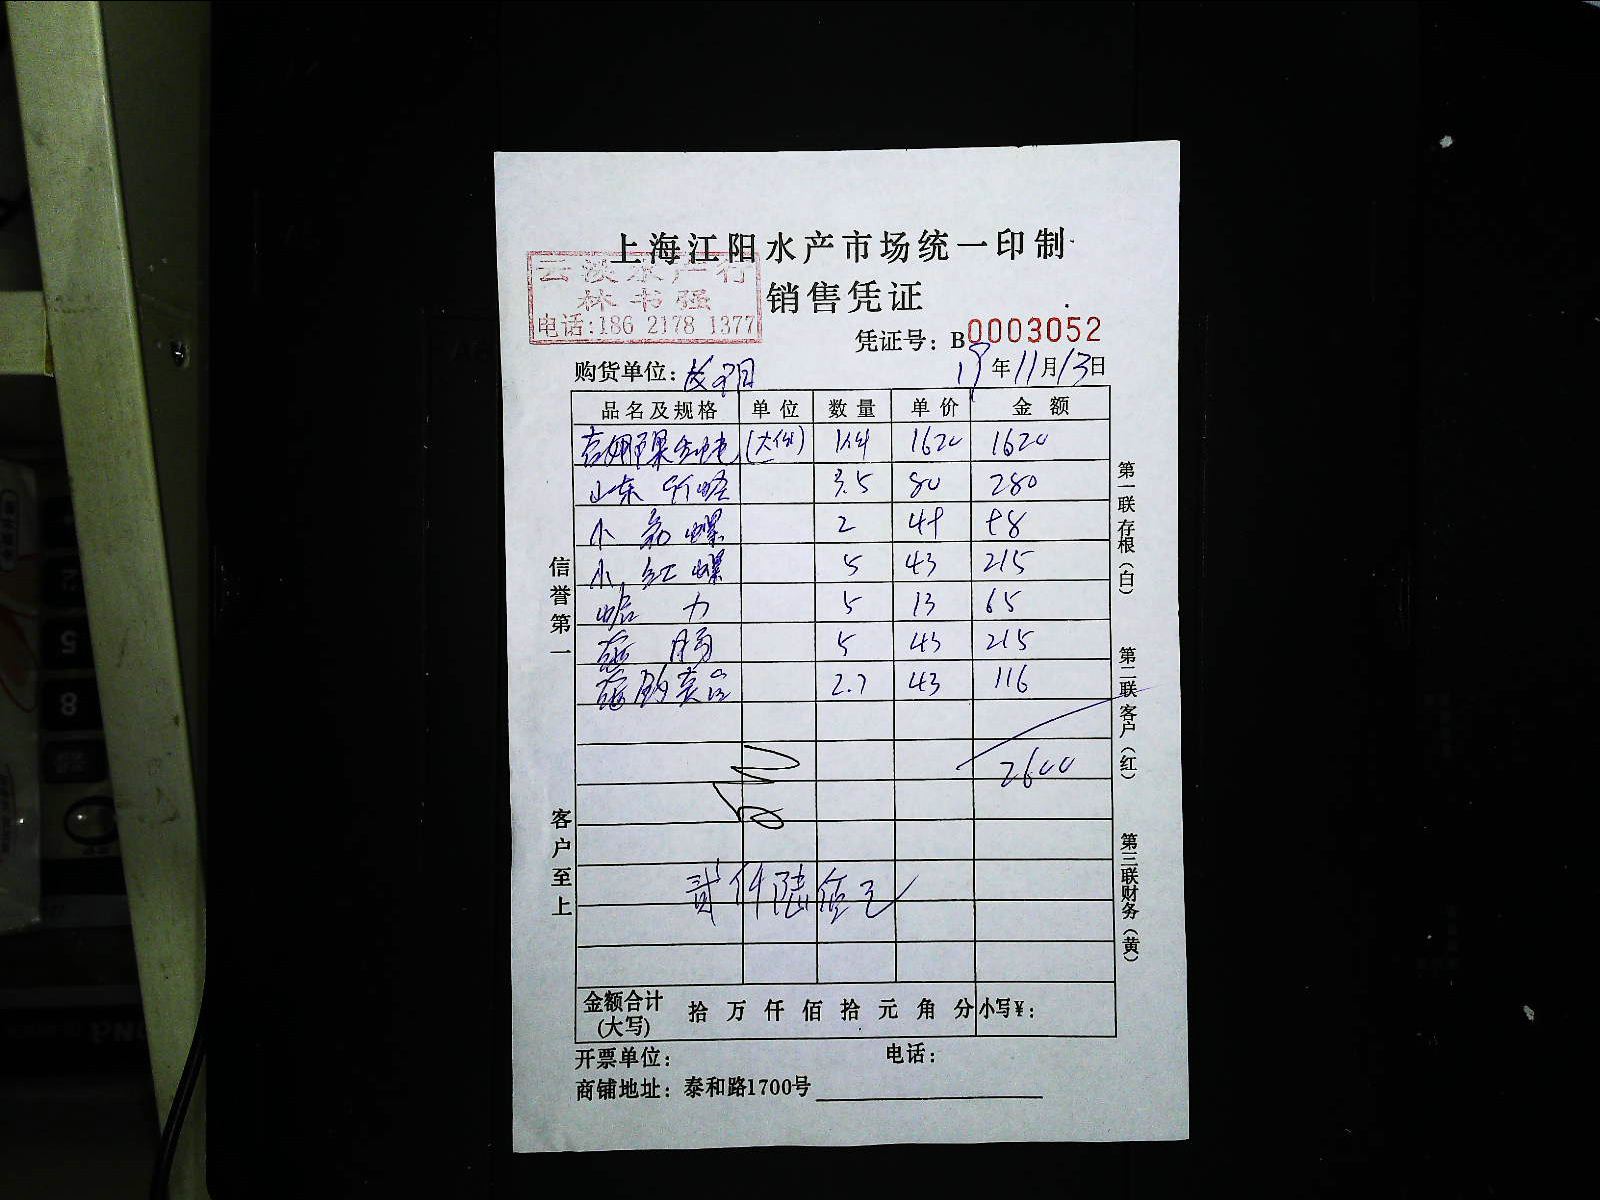 上海江阳水产市场统一印制
销售凭证
云淡水产行
林书强
电话:186 2178 1377
凭证号: B0003052
购货单位:
19年11月13日
品名及规格 单位 数量 单价 金额
(大件) 1件 1620 1620
山东 3.5 80 280
小 螺 2 49 98
小红螺 5 43 215
力 5 13 65
5 43 215
2.7 43 116
2600
贰仟陆佰元
金额合计(大写) 拾万仟佰拾元角分 小写¥:
开票单位: 电话:
商铺地址: 泰和路1700号
信誉第一
客户至上
第一联存根(白)
第二联客户(红)
第三联财务(黄)